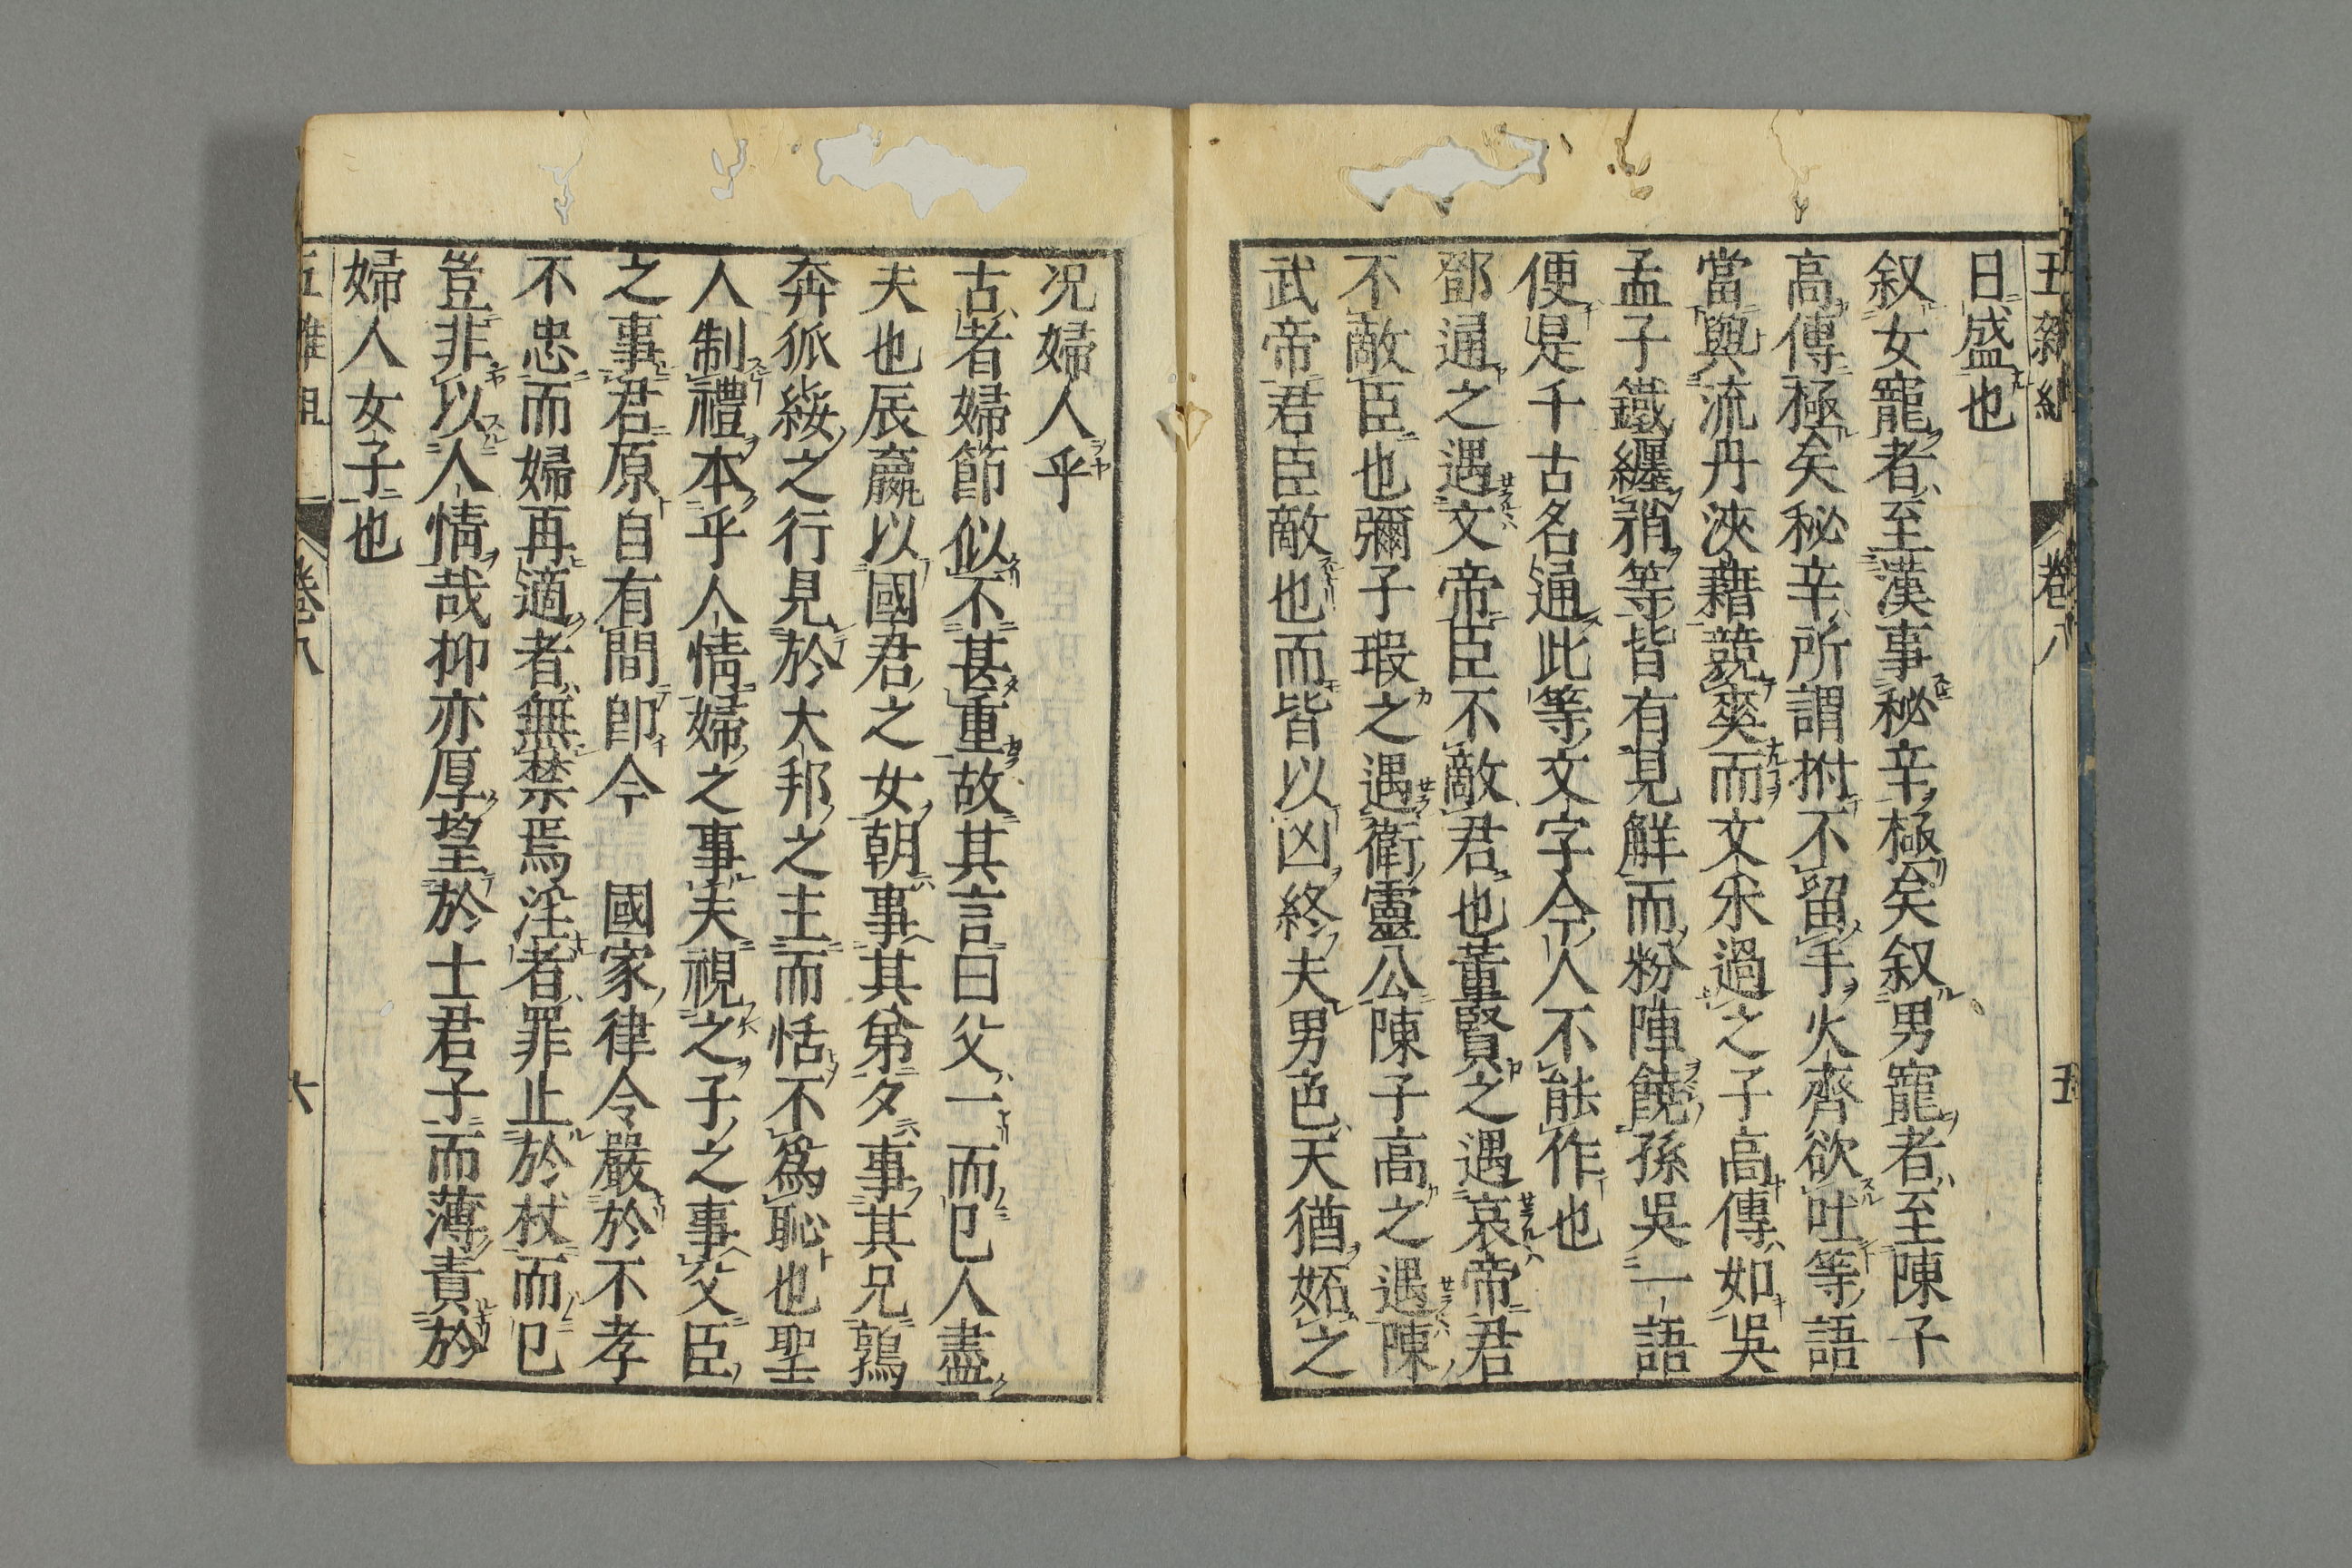 五雜組 卷八 五
日盛也
叙女寵者至漢事秘辛極矣叙男寵者至陳子
高傳極矣秘辛所謂拊不留手火齊欲吐等語
當與流丹浹藉競奭而文采過之子高傳如吳
孟子鐵纏矟等皆有見鮮而粉陣饒孫吳一語
便是千古名通此等文字今人不能作也
鄧通之遇文帝臣不敵君也董賢之遇哀帝君
不敵臣也彌子瑕之遇衛靈公陳子高之遇陳
武帝君臣敵也而皆以凶終夫男色天猶妬之
况婦人乎
古者婦節似不甚重故其言曰父一而已人盡
夫也辰嬴以國君之女朝事其弟夕事其兄鶉
奔狐綏之行見於大邦之主而恬不爲恥也聖
人制禮本乎人情婦之事夫視之子之事父臣
之事君原自有間卽今 國家律令嚴於不孝
不忠而婦再適者無禁焉淫者罪止於杖而已
豈非以人情哉抑亦厚望於士君子而薄責於
婦人女子也
五雜組 卷八 六